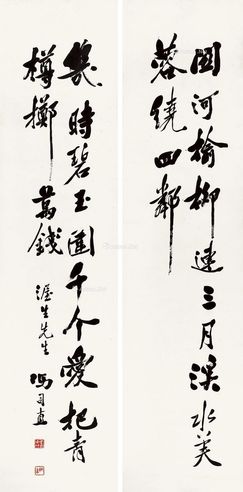 河榆柳連三月水芙
蓉繞四鄰
幾時碧玉圍千个愛把青
樽擲萬錢
渥生先生 馮司直